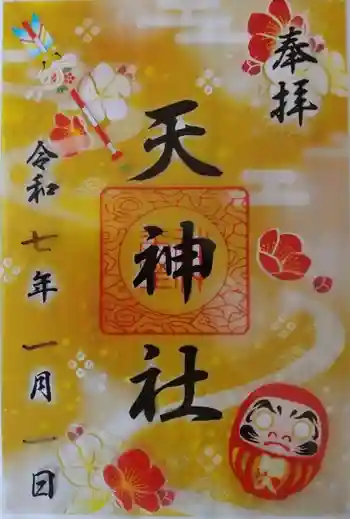 奉拝
天神社
令和七年一月一日